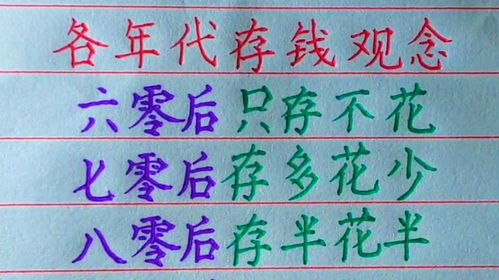 各年代存钱观念
六零后只存不花
七零后存多花少
八零后存半花半